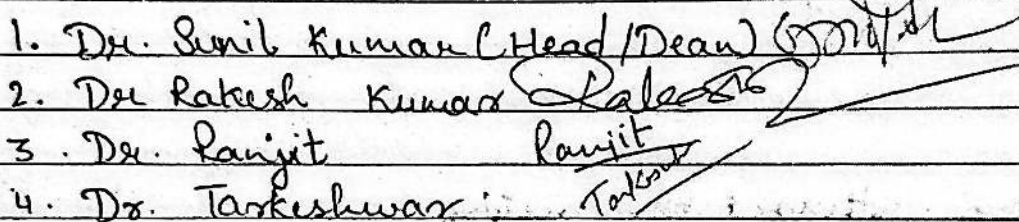 1. Dr. Sunil Kumar (Head/Dean)
2. Dr Rakesh Kumar
3. Dr. Ranjit Ranjit
4. Dr. Tarkeshwar